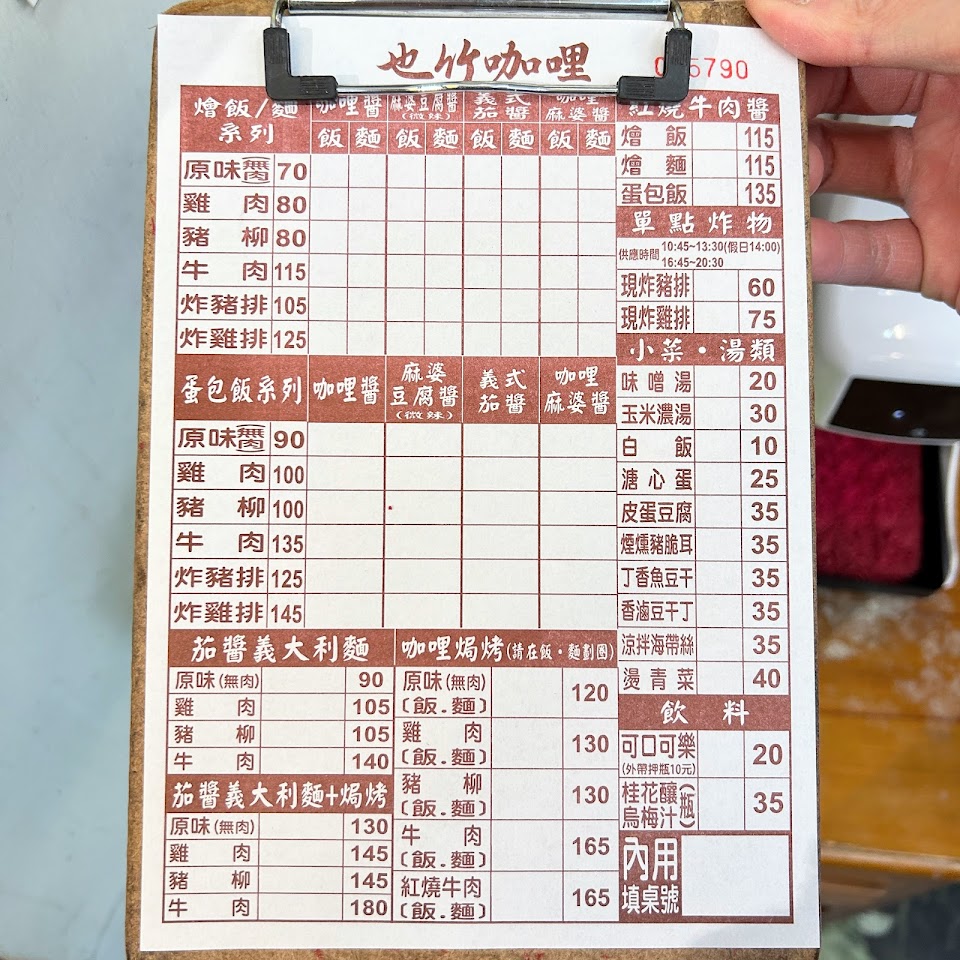 也竹咖哩
5790
燴飯/麵系列 咖哩醬 麻婆豆腐醬(微辣) 義式茄醬 咖哩麻婆醬
飯 麵 飯 麵 飯 麵 飯 麵
原味(無肉) 70
雞肉 80
豬柳 80
牛肉 115
炸豬排 105
炸雞排 125
蛋包飯系列 咖哩醬 麻婆豆腐醬(微辣) 義式茄醬 咖哩麻婆醬
原味(無肉) 90
雞肉 100
豬柳 100
牛肉 135
炸豬排 125
炸雞排 145
茄醬義大利麵
原味(無肉) 90
雞肉 105
豬柳 105
牛肉 140
茄醬義大利麵+焗烤
原味(無肉) 130
雞肉 145
豬柳 145
牛肉 180
咖哩焗烤(請在飯·麵劃圈)
原味(無肉)
(飯.麵) 120
雞肉
(飯.麵) 130
豬柳
(飯.麵) 130
牛肉
(飯.麵) 165
紅燒牛肉
(飯.麵) 165
紅燒牛肉醬
燴飯 115
燴麵 115
蛋包飯 135
單點炸物
供應時間 10:45~13:30(假日14:00)
16:45~20:30
現炸豬排 60
現炸雞排 75
小菜·湯類
味噌湯 20
玉米濃湯 30
白飯 10
溏心蛋 25
皮蛋豆腐 35
煙燻豬脆耳 35
丁香魚豆干 35
香滷豆干丁 35
涼拌海帶絲 35
燙青菜 40
飲料
可口可樂 20
(外帶押瓶10元)
桂花釀烏梅汁(瓶) 35
內用
填桌號